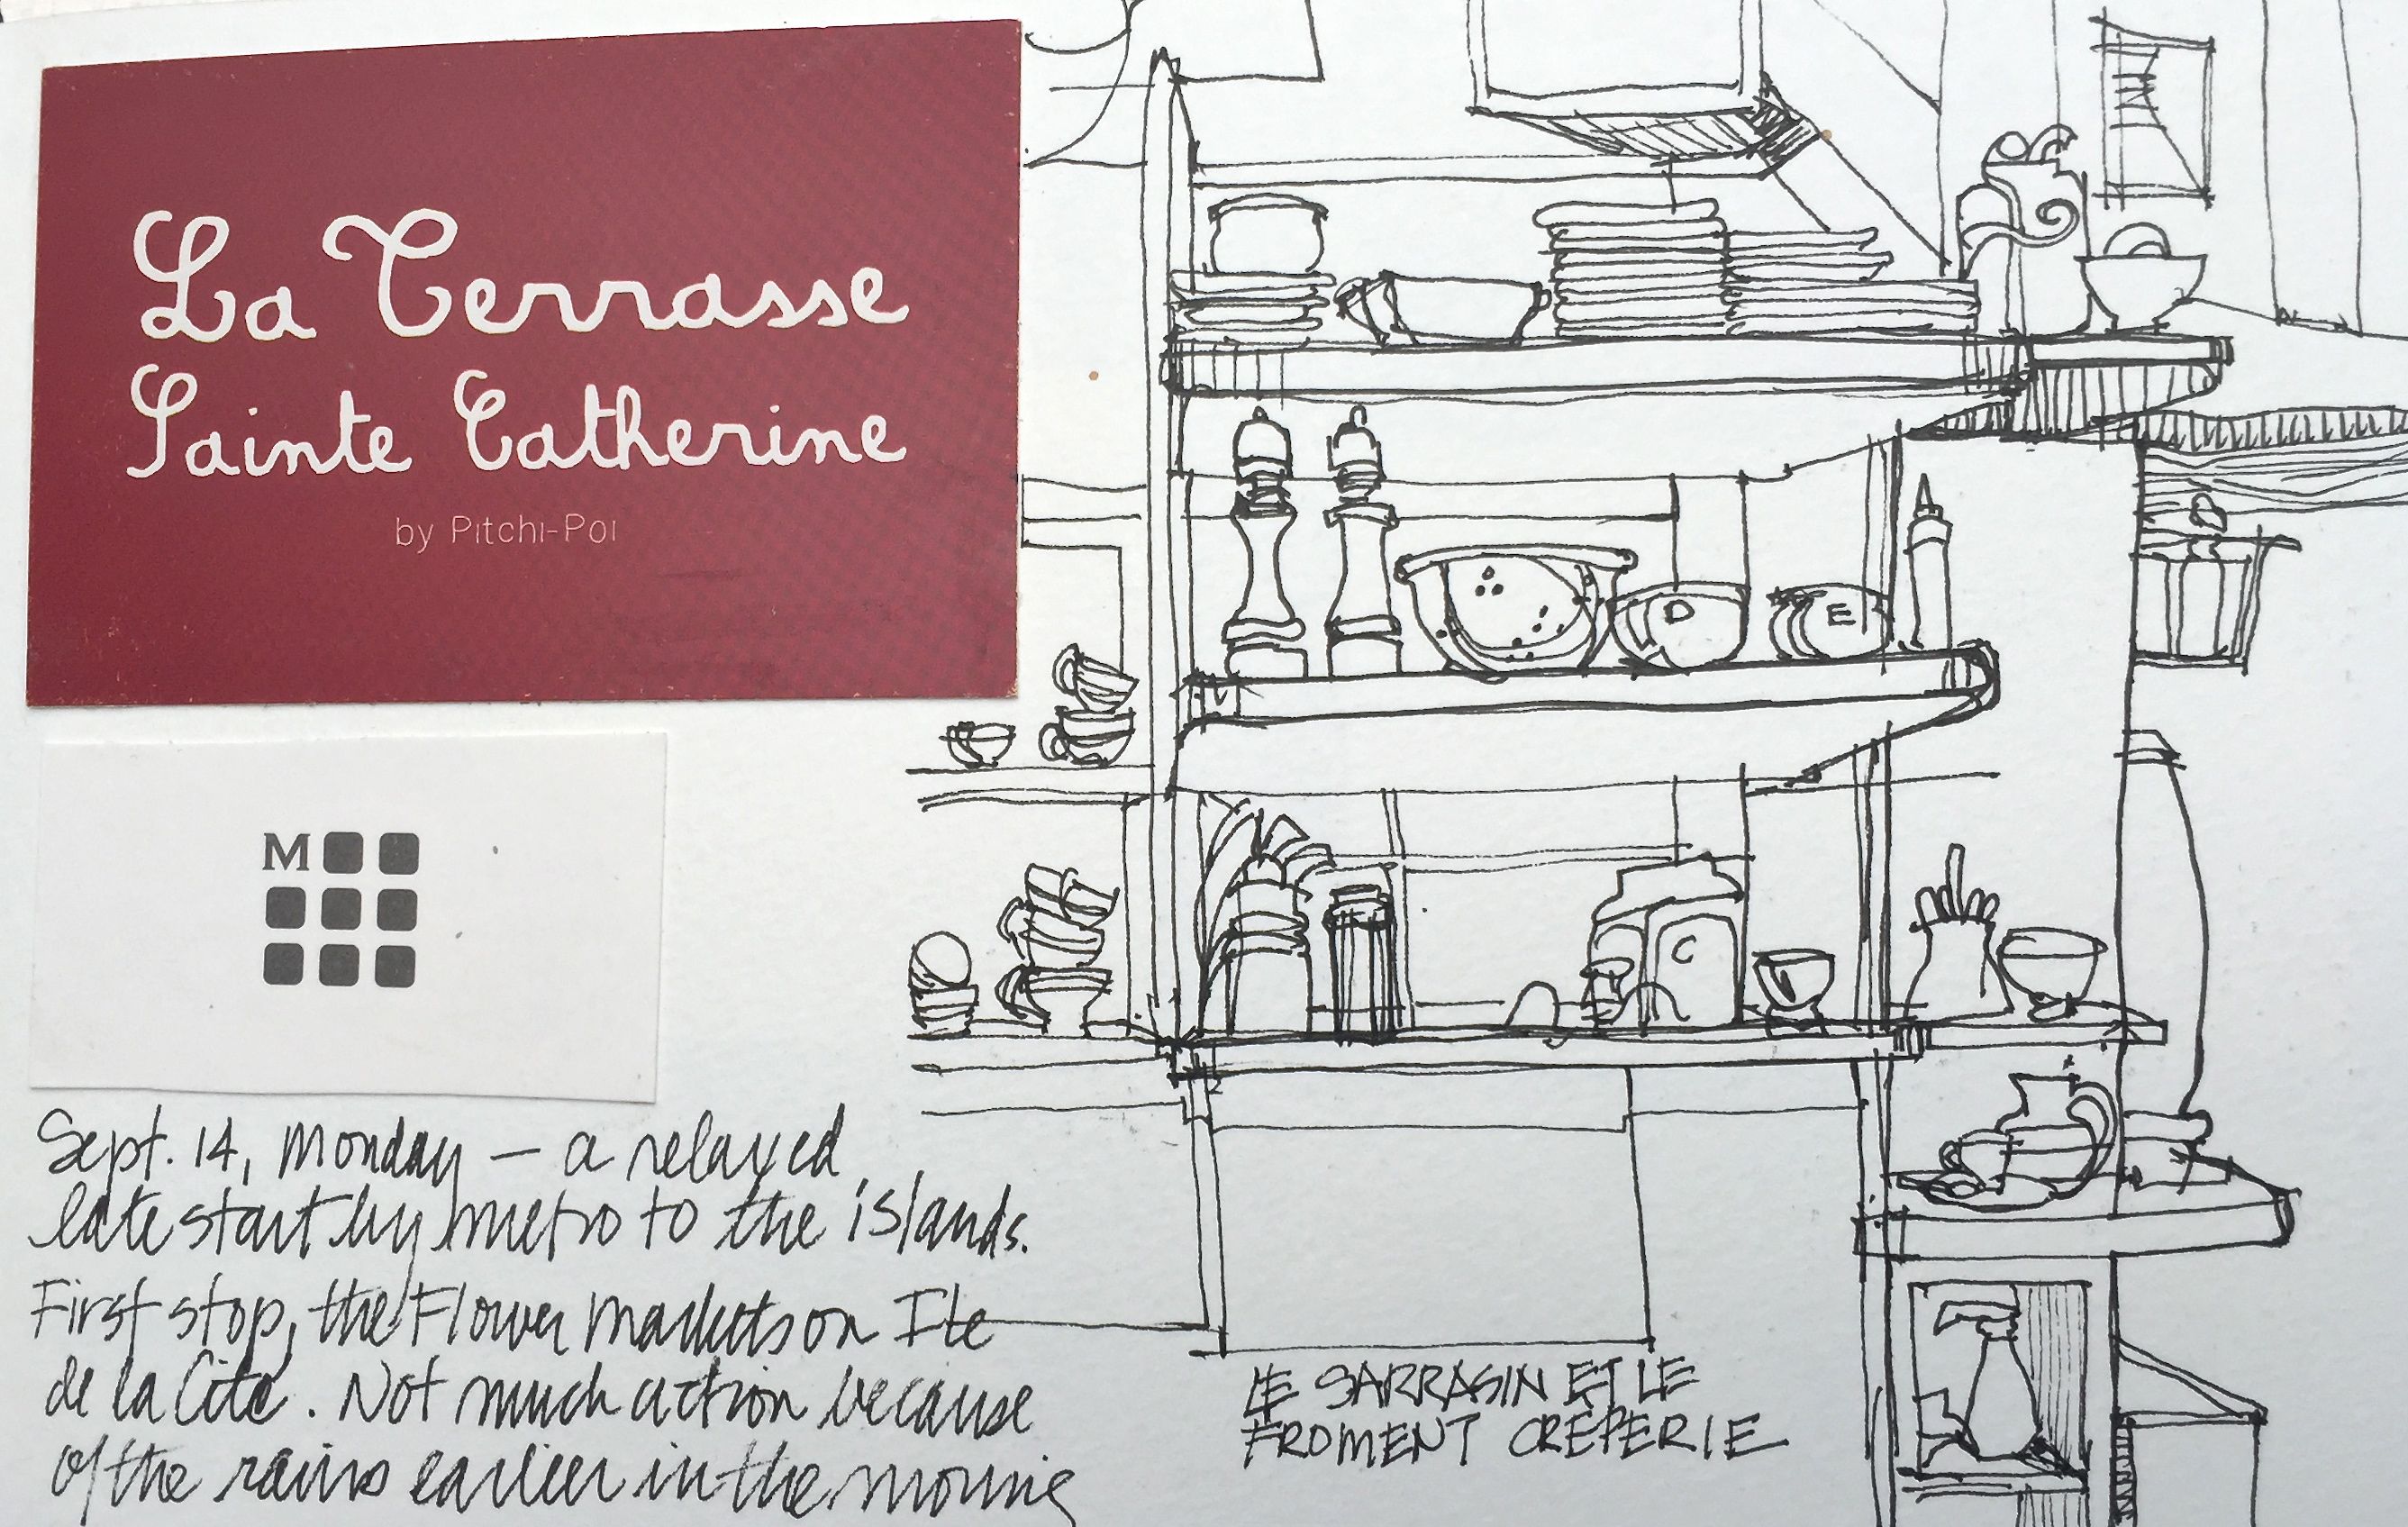 La Terrasse
Sainte Catherine
by Pitchi-Poi
M
D
E
C
Sept. 14, Monday — a relaxed
late start by metro to the islands.
First stop, the Flower markets on Ile
de la Cite. Not much action because
of the rains earlier in the morning
LE SARRASIN ET LE
FROMENT CREPERIE